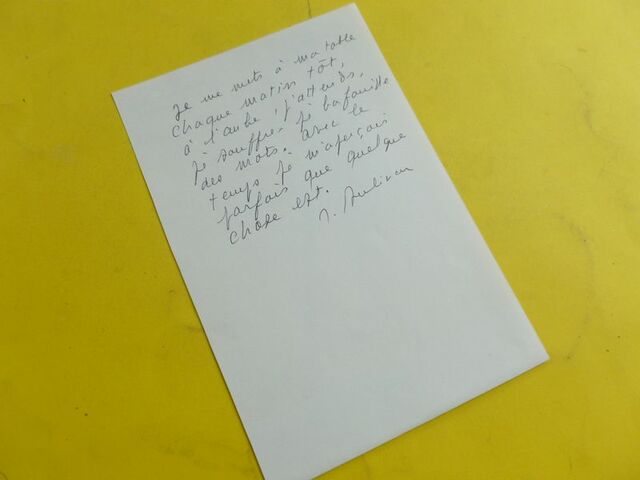 Je me mets à ma table
chaque matin tôt,
à l'aube, j'attends,
je souffre, je bafouille
des mots. avec le
temps je m'aperçois
parfois que quelque
chose est.
J. Sulivan